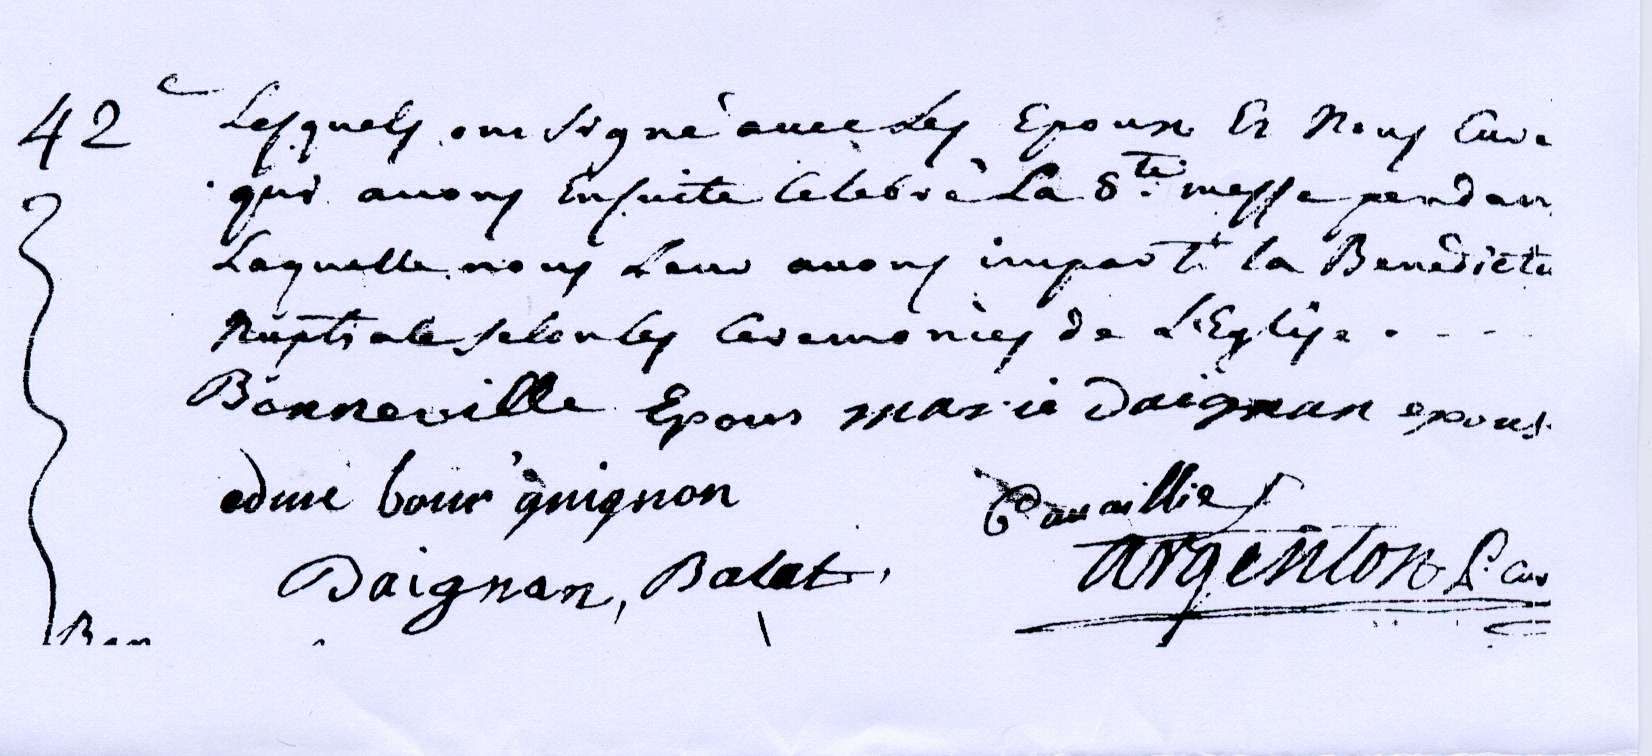 42 Lesquels ont signé avec Les Epoux Et Nous Curé
qui avons Ensuite Celebré La Ste messe pendan
Laquelle nous Leur avons imparti la Benedicti
Nuptiale selon les Ceremonies de L'Eglise . - - -
Bonneville Epous marie Daignan epous
edme bourguignon Cavaillier
Daignan, Balat, argenton P. Cur
Bon